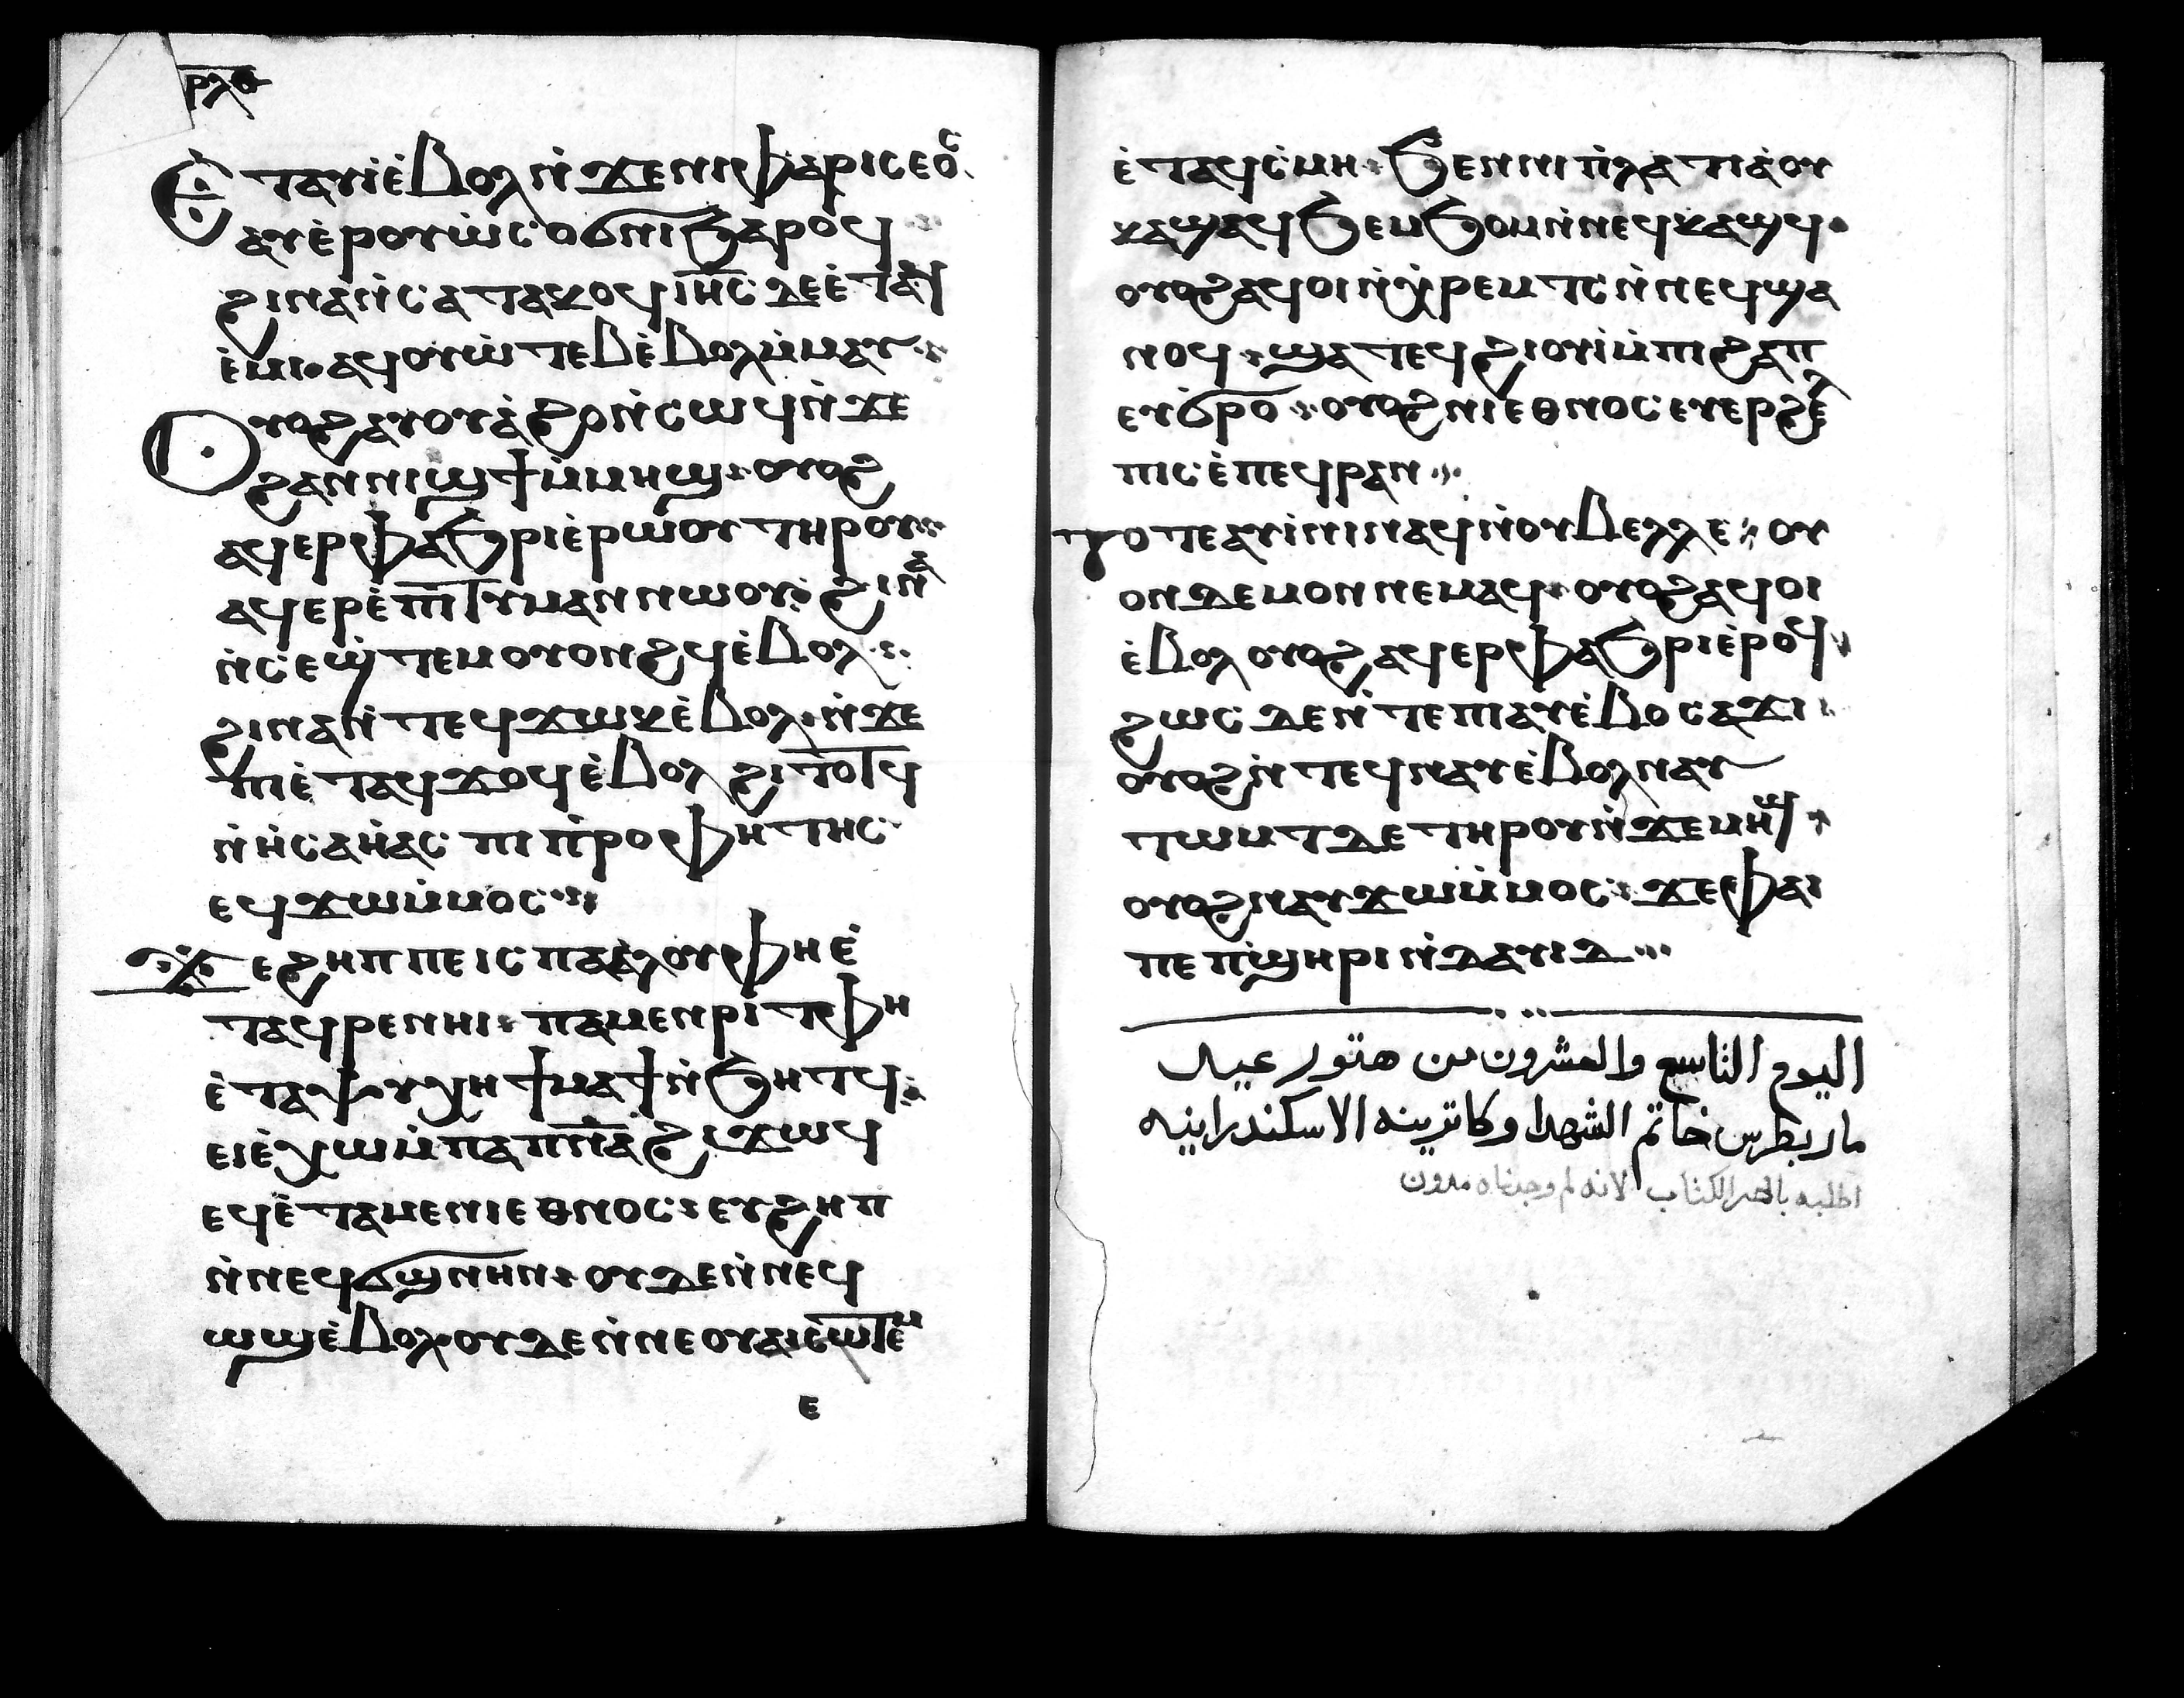 ⲣⲗⲑ
Ⲉ̀ⲧⲁⲩⲓ̀ⲉ̀ⲃⲟⲗ ⲛ̀ϫⲉⲛⲓⲫⲁⲣⲓⲥⲉⲟⲥ
ⲁⲩⲉ̀ⲣⲟⲩⲱ̀ⲥⲟϭⲛⲓ ϧⲁⲣⲟϥ
ϩⲓⲛⲁ ⲛ̀ⲥⲁⲧⲁⲕⲟϥ ⲓⲏ̅ⲥ̅ ⲇⲉ ⲉ̀ⲧⲁϥ
ⲉ̀ⲙⲓ· ⲁϥⲟⲩⲱ̀ⲧⲉⲃ ⲉ̀ⲃⲟⲗ ⲙ̀ⲙⲁⲩ
Ⲟⲩⲟϩ ⲁⲩⲟⲩⲁ̀ϩⲟⲛ̀ⲥⲱϥ ⲛ̀ϫⲉ
ϩⲁⲛⲛⲓϣϯ ⲙ̀ⲙⲏϣ ⲟⲩⲟϩ
ⲁϥⲉⲣⲫⲁϧⲣⲓ ⲉ̀ⲣⲱⲟⲩ ⲧⲏⲣⲟⲩ
ⲁϥⲉⲣⲉ̀ⲡⲓⲧⲓⲙⲁⲛ ⲛⲱⲟⲩ ϩⲓⲛⲁ
ⲛ̀ⲥⲉϣ̀ⲧⲉⲙⲟⲩⲟⲛϩϥ ⲉ̀ⲃⲟⲗ
ϩⲓⲛⲁ ⲛ̀ⲧⲉϥϫⲱⲕ ⲉ̀ⲃⲟⲗ ⲛ̀ϫⲉ
ⲡⲓⲉ̀ⲧⲁϥϫⲟϥ ⲉ̀ⲃⲟⲗ ϩⲓⲧⲟⲧϥ
ⲛ̀ⲏ̀ⲥⲁⲏ̀ⲁⲥ ⲡⲓⲡ̀ⲣⲟⲫⲏⲧⲏⲥ
ⲉϥϫⲱⲙ̀ⲙⲟⲥ
Ϫⲉ ϩⲏⲡⲡⲉ ⲓⲥ ⲡⲁⲁ̀ⲗⲟⲩ ⲫⲏⲉ̀
ⲧⲁϥⲣⲉⲛⲏⲓ ⲡⲁⲙⲉⲛⲣⲓⲧ ⲫⲏ
ⲉ̀ⲧⲁⲯⲩⲭⲏ ϯⲙⲁϯ ⲛ̀ϧⲏⲧϥ
ⲉⲓⲉ̀ⲭⲱ ⲙ̀ⲡⲁⲡⲛ̅ⲁ̅ ϩⲓϫⲱϥ
ⲉϥⲉ̀ⲧⲁⲙⲉⲛⲓⲉⲑⲛⲟⲥ ⲉⲩϩⲏⲡ
ⲛ̀ⲛⲉϥϭϣⲛⲏⲛ ⲟⲩⲇⲉ ⲛ̀ⲛⲉϥ
ⲱϣ ⲉ̀ⲃⲟⲗ ⲟⲩⲇⲉ ⲛ̀ⲛⲉⲟⲩⲁⲓ ⲥⲱⲧⲉⲙ
ⲉ
ⲉ̀ⲧⲁϥⲥ̀ⲙⲏ ϧⲉⲛⲛⲓⲡ̀ⲗⲁⲧⲓⲁ̀ ⲟⲩ
ⲕⲁϣ ⲁϥϧⲉⲙϧⲟⲙ ⲛ̀ⲛⲉϥⲕⲁϣϥ
ⲟⲩⲟϩ ⲁϥⲟⲓ ⲛ̀ⲭ̀ⲣⲉⲙⲧⲥ ⲛ̀ⲛⲉϥϣⲁ
ⲛⲟϥ ϣⲁⲧⲉϥϩⲓⲟⲩⲓ̀ ⲙ̀ⲡⲓϩⲁⲡ
ⲉⲩϭ̀ⲣⲟ ⲟⲩⲟϩ ⲛⲓⲉⲑⲛⲟⲥ ⲉⲩⲉⲣϩⲉⲗ
ⲡⲓⲥ ⲉ̀ⲡⲉϥⲣⲁⲛ
Ⲧⲟⲧⲉ ⲁⲩⲓ̀ⲛⲓ ⲛⲁϥ ⲛ̀ⲟⲩⲃⲉⲗⲗⲉ ⲟⲩ
ⲟⲛ ⲇⲉⲙⲟⲛ ⲛⲉⲙⲁϥ ⲟⲩⲟϩ ⲁϥⲟⲓ
ⲉ̀ⲃⲟⲗ ⲟⲩⲟϩ ⲁϥⲉⲣⲫⲁϧⲣⲓ ⲉ̀ⲣⲟϥ
ϩⲱⲥ ⲇⲉ ⲛ̀ⲧⲉ ⲡⲓⲁⲩⲉ̀ⲃⲟ ⲥⲁϫⲓ
ⲟⲩⲟϩ ⲛ̀ⲧⲉϥⲛⲁⲩ ⲉ̀ⲃⲟⲗ ⲛⲁⲩ
ⲧⲱⲙⲧ ⲇⲉ ⲧⲏⲣⲟⲩ ⲛ̀ϫⲉ ⲙⲏϣ
ⲟⲩⲟϩ ⲛⲁⲩϫⲱ ⲙ̀ⲙⲟⲥ ϫⲉ ⲫⲁⲓ
ⲡⲉ ⲡ̀ϣⲏⲣⲓ ⲛ̀ⲇⲁⲩⲓⲇ
اليوم التاسع والعشرون من هتور عيد
مار بطرس خاتم الشهدا وكاترينه الاسكندرانيه
اطلبه باخر الكتاب لانه لم وجدناه مدون